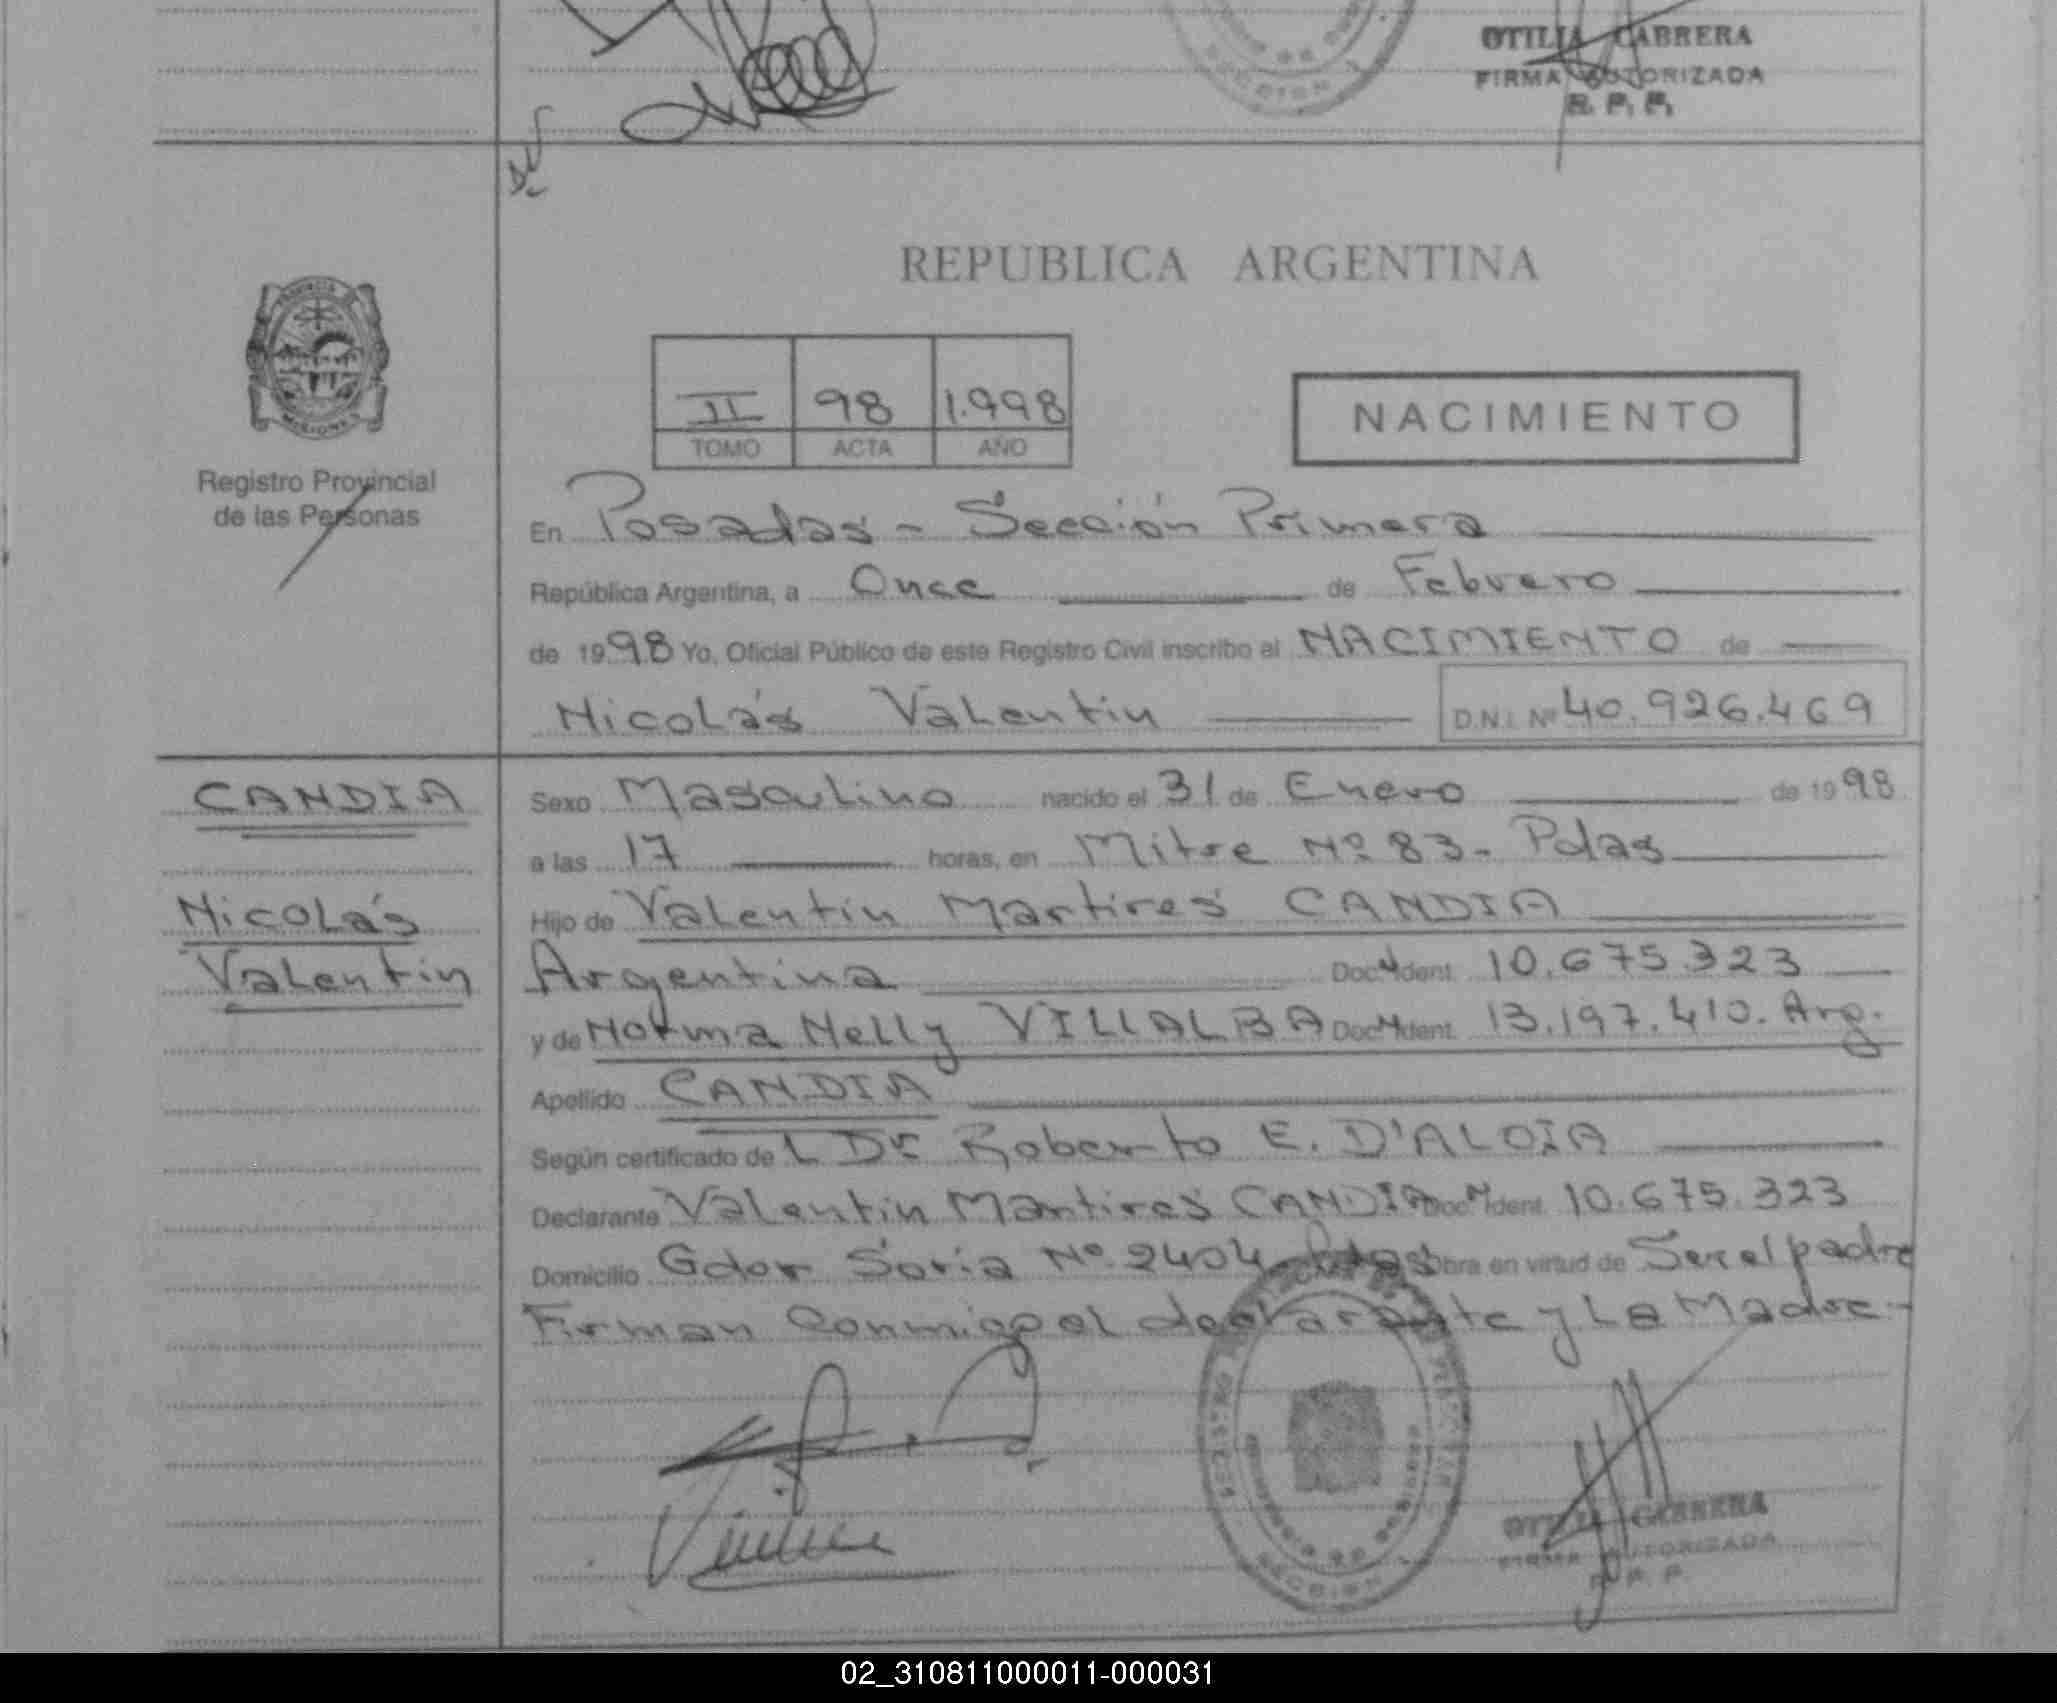 OTILIA CABRERA
FIRMA AUTORIZADA
R. P. P.
SECCION 1
REPUBLICA ARGENTINA
PROVINCIA DE
MISIONES
Registro Provincial
de las Personas
II 98 1.998
TOMO ACTA AÑO
NACIMIENTO
En Posadas - Sección Primera
República Argentina, a Once de Febrero
de 1998 Yo, Oficial Público de este Registro Civil inscribo el NACIMIENTO de
Nicolás Valentin D.N.I. Nº 40.926.469
CANDIA
Nicolás
Valentin
Sexo Masculino nacido el 31 de Enero de 1998
a las 17 horas, en Mitre Nº 83- Pdas
Hijo de Valentín Martires CANDIA
Argentina Doc. Ident. 10.675.323
y de Norma Nelly VILLALBA Doc. Ident. 13.197.410. Arg.
Apellido CANDIA
Según certificado del Dr. Roberto E. D'ALOIA
Declarante Valentín Martires CANDIA Doc. Ident. 10.675.323
Domicilio Gdor Soria Nº 2404 Pdas Obra en virtud de Ser el padre
Firman Conmigo el declarante y La Madre-
SECCION 1
OTILIA CABRERA
FIRMA AUTORIZADA
R. P. P.
02_310811000011-000031